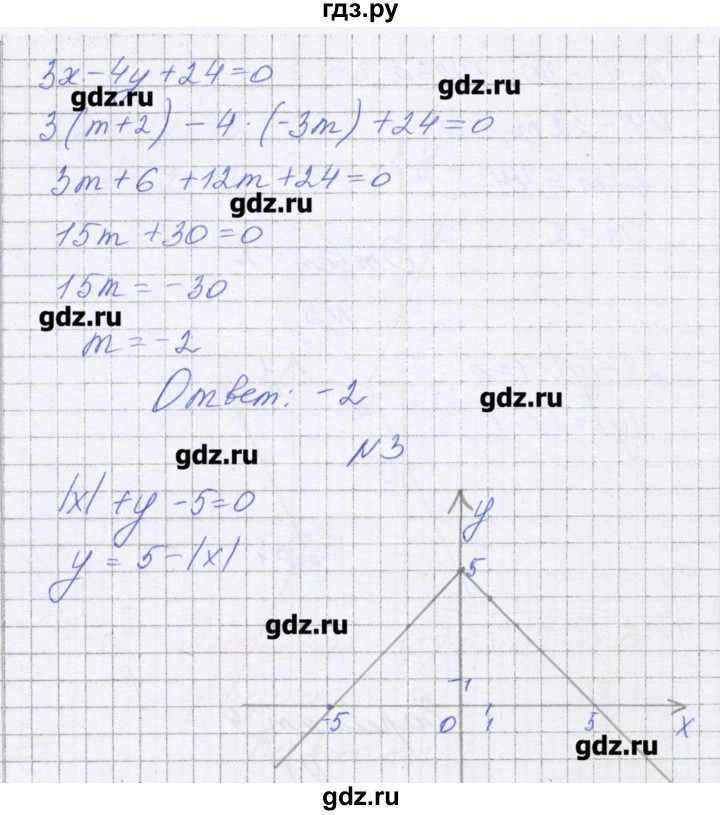 гдз.ру
3x-4y+24=0
gdz.ru
gdz.ru
3(m+2)-4·(-3m)+24=0
3m+6+12m+24=0
gdz.ru
15m+30=0
15m=-30
gdz.ru
m=-2
Ответ: -2
gdz.ru
gdz.ru
N3
|x|+y-5=0
y
y=5-|x|
5
gdz.ru
1
-5 0 1 5 x
gdz.ru
gdz.ru